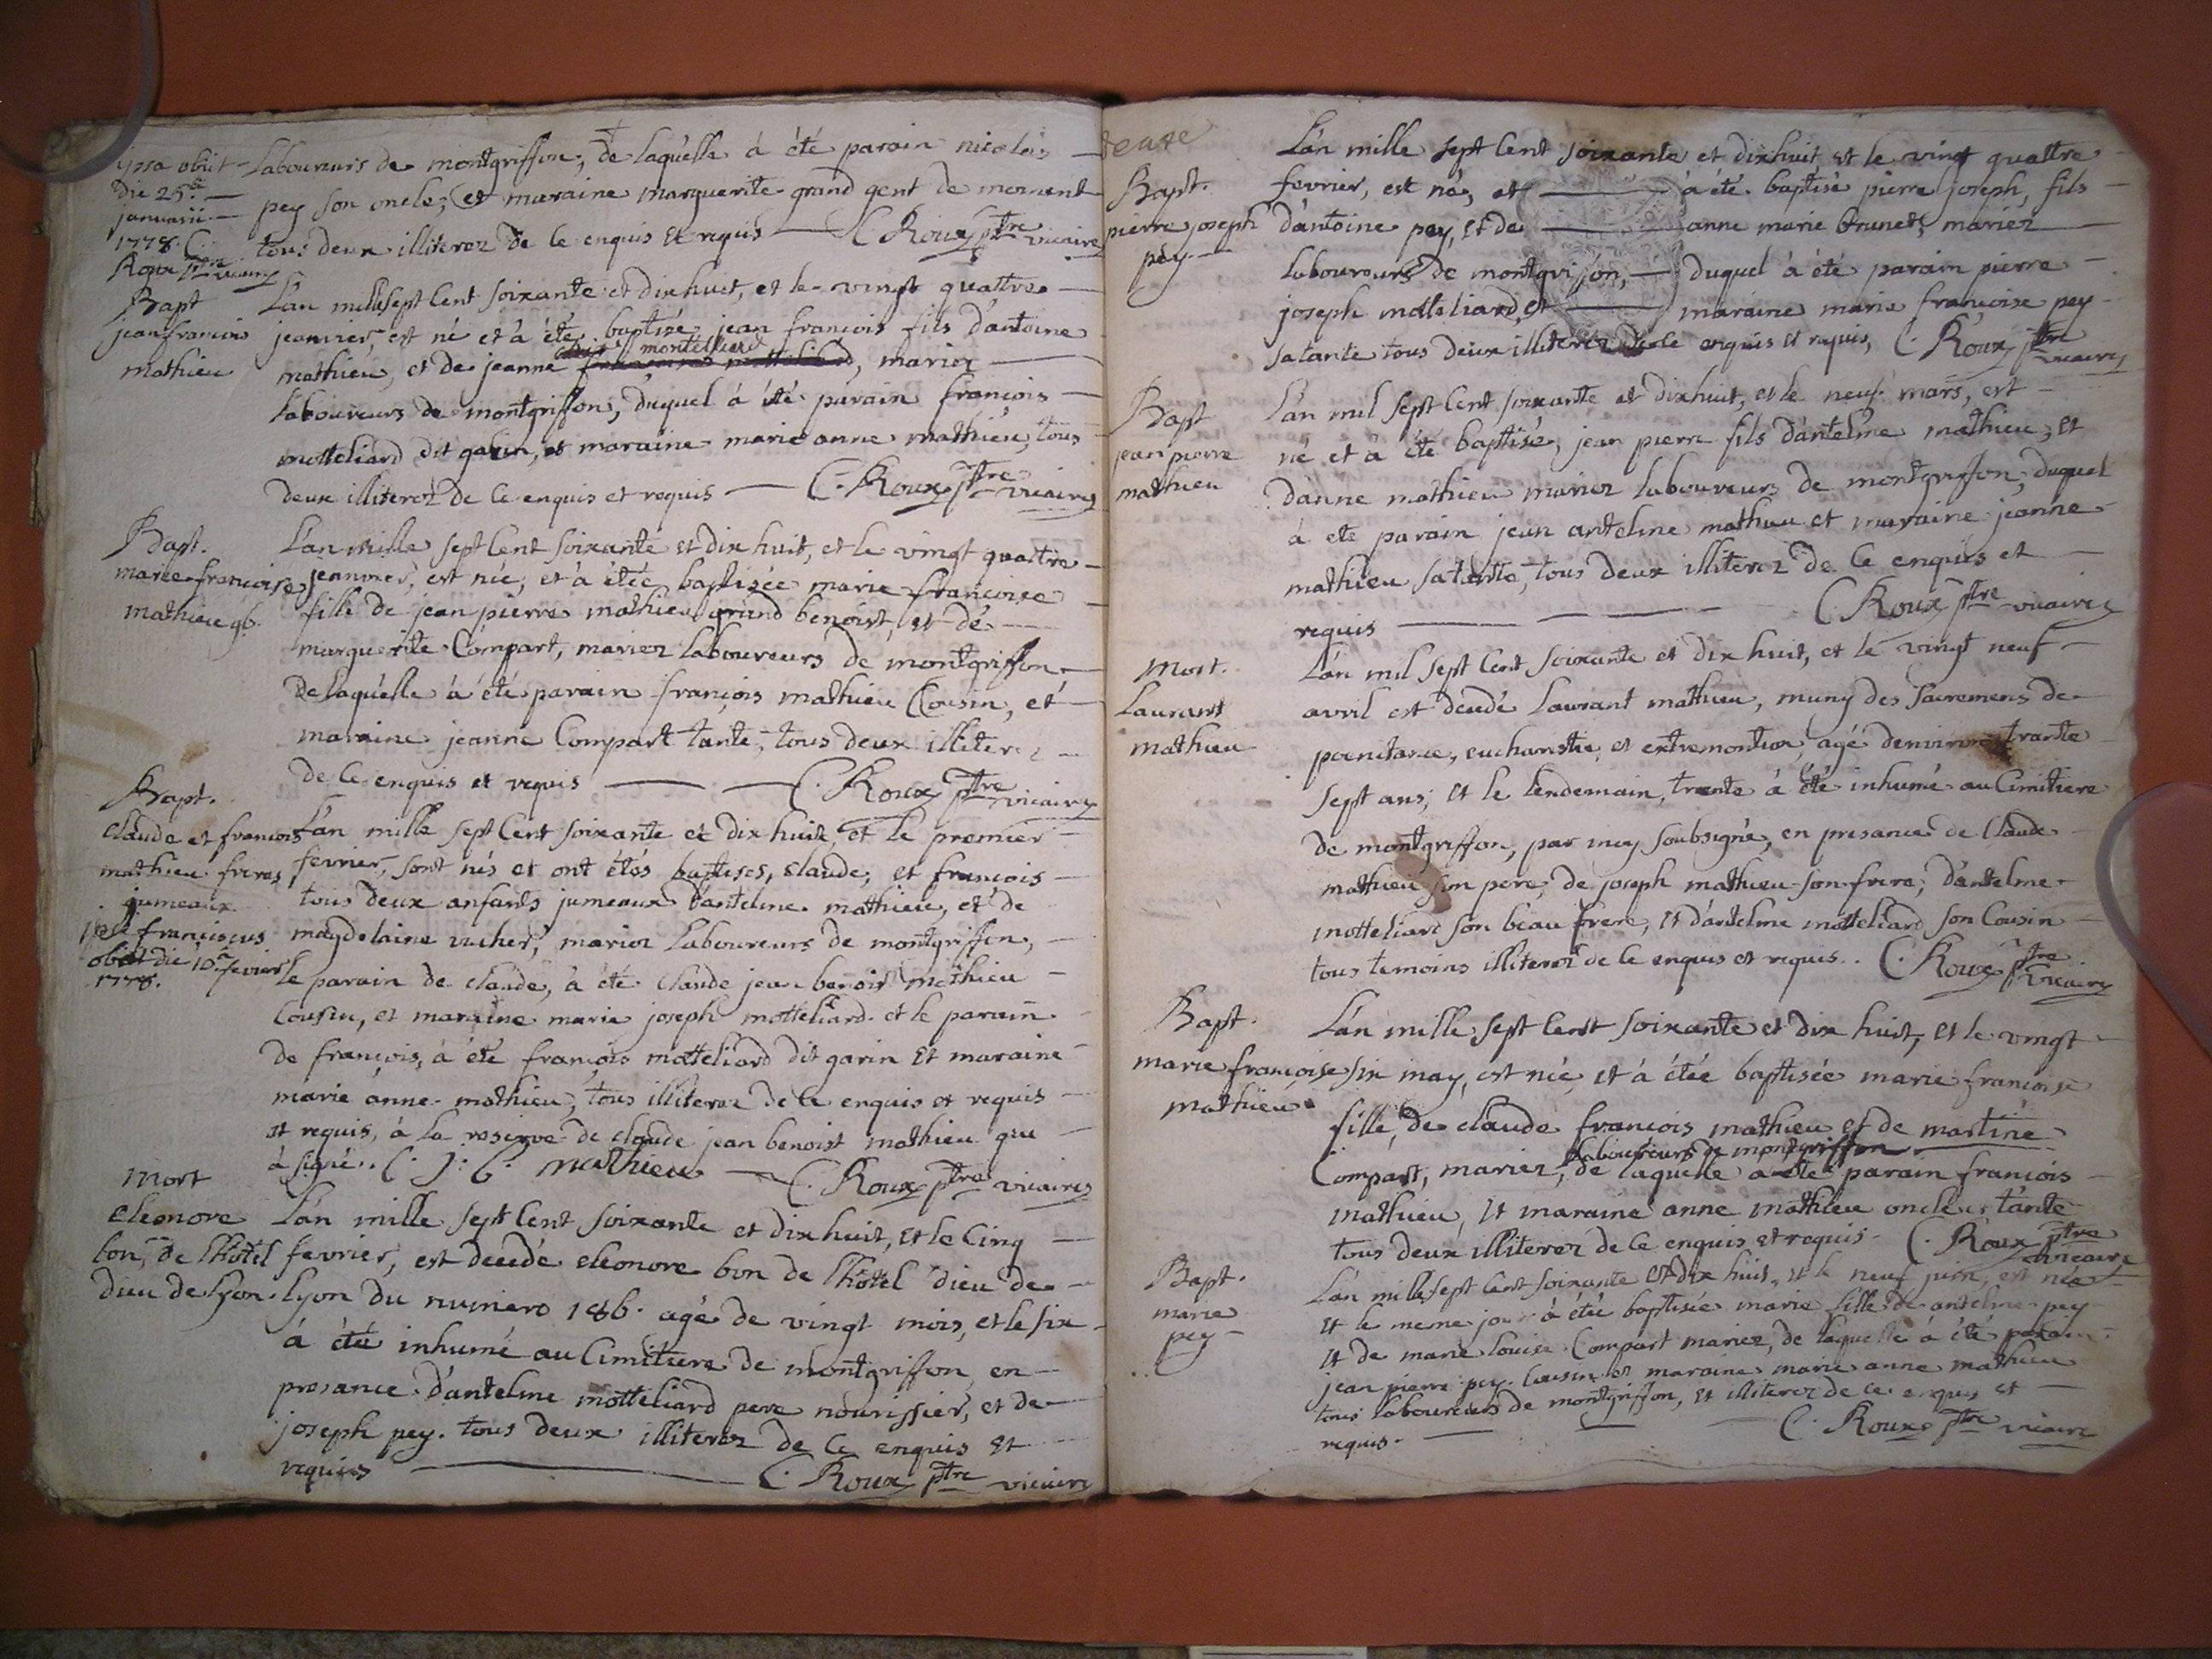 ipsa obiit
die 25.a
januarii
1778. C.
Roux ptre vicaire
laboureurs de montgriffon, de laquelle à été parain nicolas
pey son oncle, et maraine marguerite grand gent de mornent
tous deux illiterez de ce enquis et requis C Roux ptre vicaire
Bapt
jean francois
mathieu
L'an mille sept Cent soixante et dixhuit, et le vingt quattre
jeanvier, est né et à été baptisé jean francois fils d'antoine
mathieu, et de jeanne montelliard, mariez
laboureurs de montgriffon, duquel à été parain françois
motteliard dit garin, et maraine marie anne mathieu, tous
deux illiterez de ce enquis et requis C. Roux ptre vicaire
Bapt.
marie françoise
mathieu gb.
L'an mille sept Cent soixante et dix huit, et le vingt quattre
jeanvier, est née, et à étée baptisée marie francoise
fille de jean pierre mathieu grand benoist, et de
marguerite Compart, mariez laboureurs de montgriffon
de laquelle à été parain françois mathieu Cousin, et
maraine jeanne Compart tante, tous deux illiterez
de ce enquis et requis C. Roux ptre vicaire
Bapt.
claude et francois
mathieu freres
jumeaux
ipse franciscus
obiit die 10.a fevier
1778.
L'an mille sept Cent soixante et dix huit, et le premier
fevrier, sont nés et ont étés baptises, claude, et francois
tous deux anfants jumeaux d'antelme mathieu, et de
magdelaine vucher, mariez laboureurs de montgriffon,
le parain de claude, à été claude jean benoist mathieu
Cousin, et maraine marie joseph motteliard et le parain
de françois, à été françois motteliard dit garin et maraine
marie anne mathieu, tous illiterez de ce enquis et requis
et requis, à la reserve de claude jean benoist mathieu qui
à signé. C. J. B. mathieu C. Roux ptre vicaire
mort
eleonore
bon, de l'hotel
dieu de lyon.
L'an mille sept Cent soixante et dix huit, et le Cinq
fevrier, est decedé eleonore bon de l'hotel dieu de
lyon du numero 186. agé de vingt mois, et le six
à été inhumé au Cimitiere de montgriffon en
presance d'antelme motteliard pere nourissier, et de
joseph pey. tous deux illiterez de ce enquis et
requis C. Roux ptre vicaire
Bapt.
pierre joseph
pey
L'an mille sept Cent soixante et dixhuit et le vingt quattre
fevrier, est né, et à été baptisé pierre joseph, fils
d'antoine pey, et de anne marie brunet, mariez
laboureurs de montgrifon, duquel à été parain pierre
joseph motteliard, et maraine marie françoise pey
sa tante tous deux illiterez de ce enquis et requis, C. Roux ptre vicaire
Bapt
jean pierre
mathieu
L'an mil sept Cent soixante et dixhuit, et le neuf mars, est
né et à été baptisé, jean pierre fils d'antelme mathieu, et
d'anne mathieu mariez laboureurs de montgriffon, duquel
à eté parain jean antelme mathieu et maraine jeanne
mathieu sa tante, tous deux illiterez de ce enquis et
requis C. Roux ptre vicaire
Mort.
Laurant
mathieu
L'an mil sept Cent soixante et dix huit, et le vingt neuf
avril est decedé Laurant mathieu, muny des Sacremens de
poenitance, eucharistie, et extremontion, agé denviron trante
sept ans, et le lendemain, trente à été inhumé au Cimitiere
de montgriffon, par moy soubsigné, en presance de Claude
mathieu son pere, de joseph mathieu son frere, d'antelme
motteliard son beau frere, et d'antelme motteliard son Cousin
tous temoins illiterez de ce enquis et requis. C. Roux ptre vicaire
Bapt.
marie françoise
mathieu
L'an mille sept Cent soixante et dix huit, et le vingt
six may, est née, et à étée baptisée marie francoise
fille, de claude francois mathieu et de martine
laboureurs de montgriffon
Compart, mariez, de laquelle a été parain francois
mathieu, et maraine anne mathieu oncle et tante
tous deux illiterez de ce enquis et requis. C. Roux ptre vicaire
Bapt.
marie
pey
L'an mille sept Cent soixante et dix huit, et le neuf juin, est née
et le meme jour à étée baptisée marie fille de antelme pey
et de marie louise Compart mariez, de laquelle à été parain
jean pierre pey. Cousin et maraine marie anne mathieu
tous laboureurs de montgriffon, et illiterez de ce enquis et
requis. C. Roux ptre vicaire